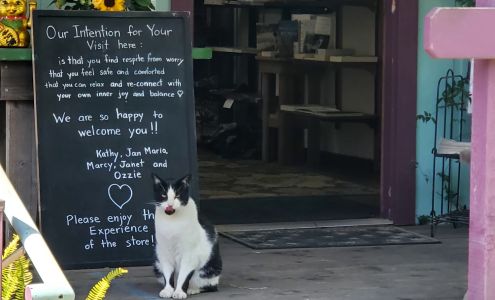 Our Intention for Your
Visit here :
is that you find respite from worry
that you feel safe and comforted
that you can relax and re-connect with
your own inner joy and balance ♡
We are so happy to
welcome you !!
Kathy, Jan Maria,
Marcy, Janet and
Ozzie
Please enjoy th
Experience
of the store!